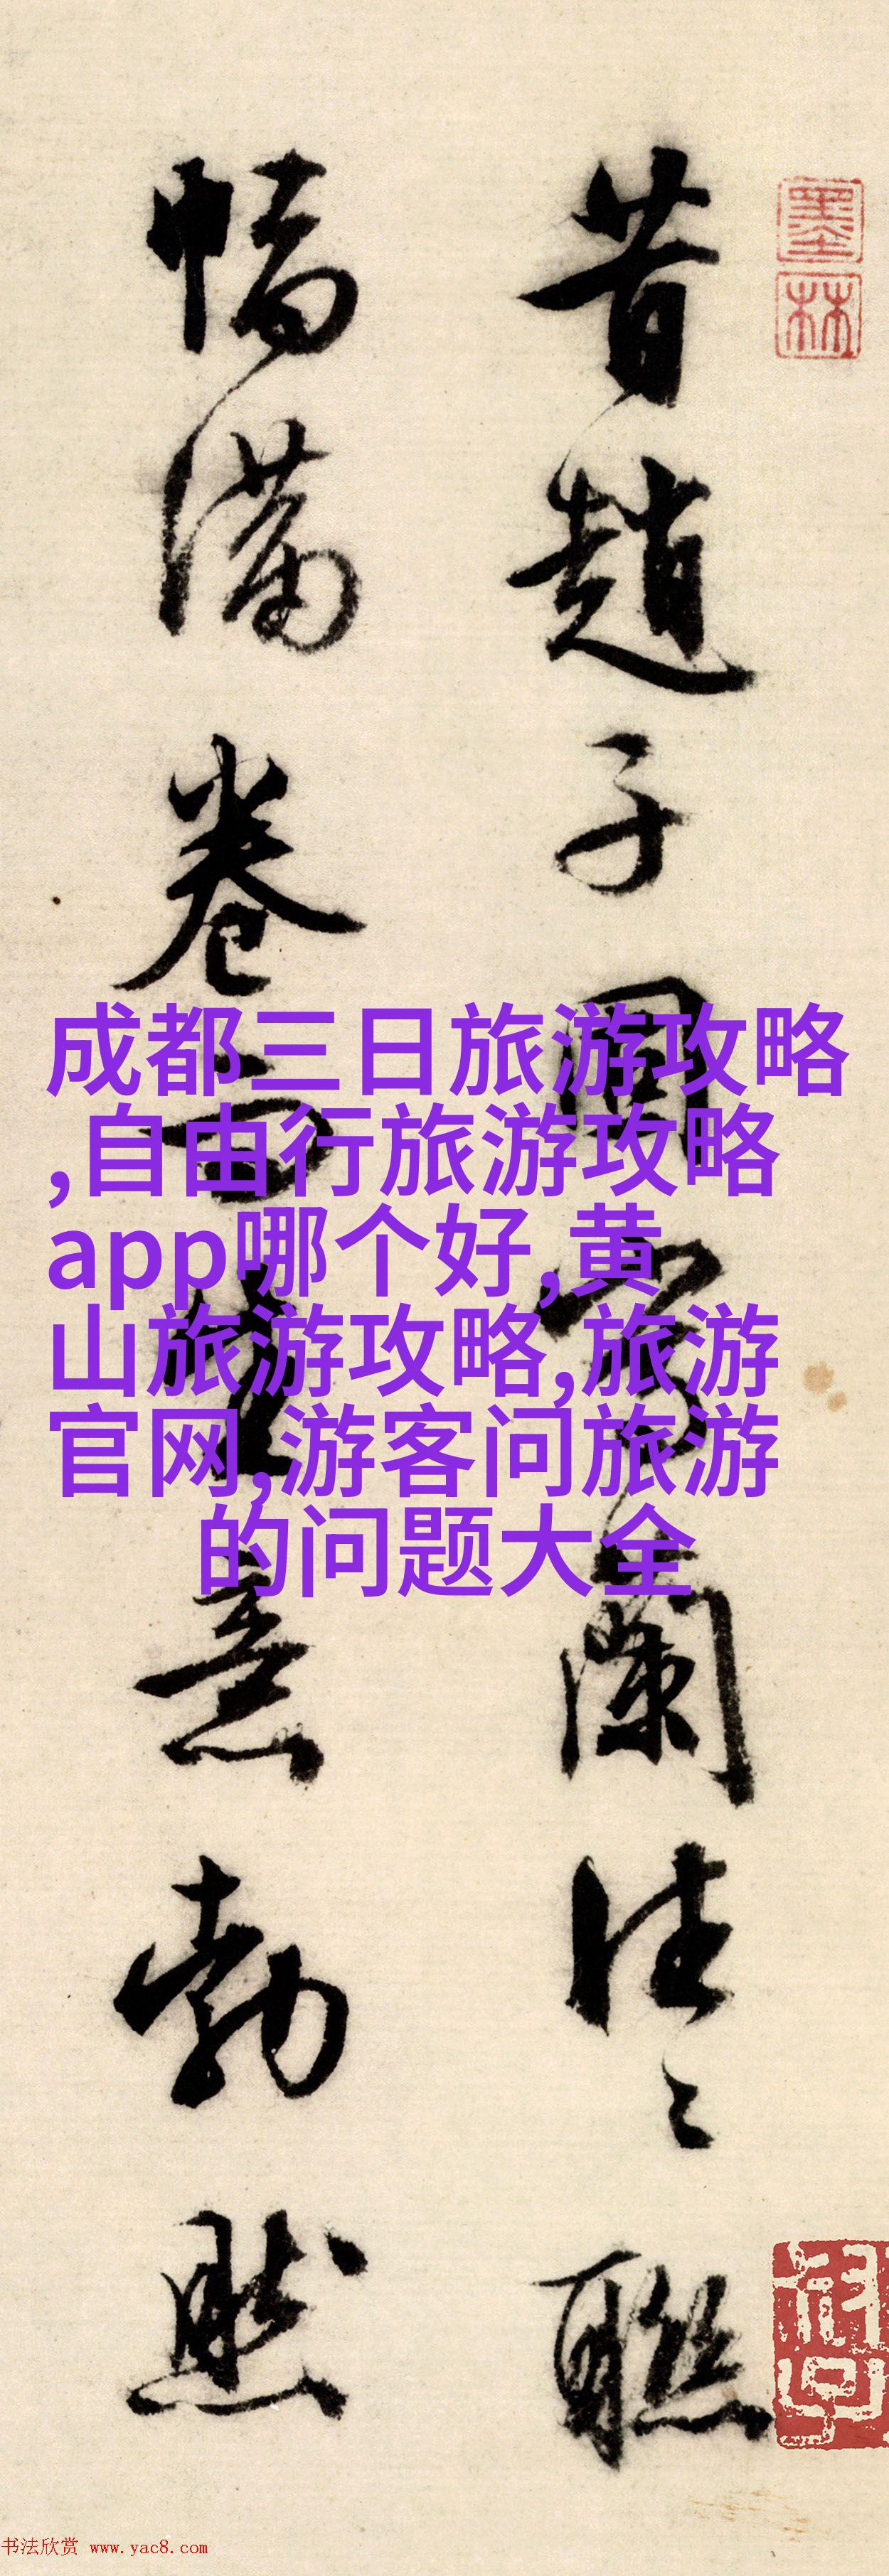 昔趙子固寫蘭往〻聯
幅滿卷而生意勃然
墨林
成都三日旅游攻略
,自由行旅游攻略
app哪个好,黄
山旅游攻略,旅游
官网,游客问旅游
的问题大全
书法欣赏 www.yac8.com